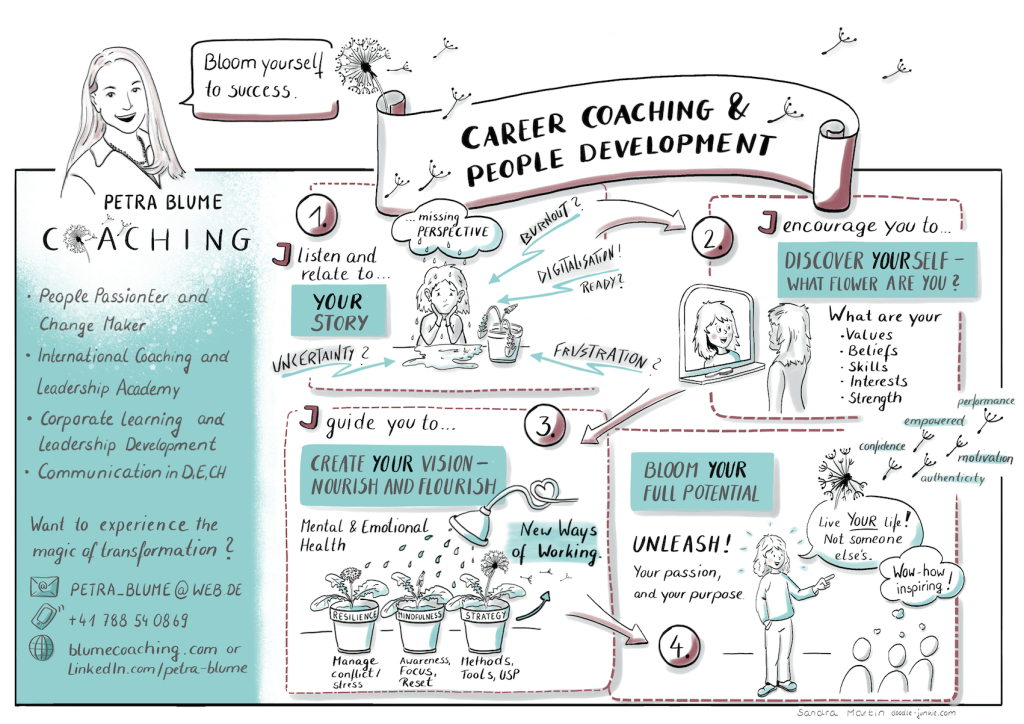 Bloom yourself
to success.
CAREER COACHING &
PEOPLE DEVELOPMENT
PETRA BLUME
COACHING
• People PassionEer and
Change Maker
• International Coaching and
Leadership Academy
• Corporate Learning and
Leadership Development
• Communication in D,E,CH
Want to experience the
magic of transformation?
PETRA_BLUME@WEB.DE
+41 788 54 08 69
blumecoaching.com or
LinkedIn.com/petra-blume
1.
I listen and
relate to...
YOUR
STORY
...missing
PERSPECTIVE
BURNOUT?
DIGITALISATION!
READY?
UNCERTAINTY?
FRUSTRATION?
2.
I encourage you to...
DISCOVER YOURSELF –
WHAT FLOWER ARE YOU?
What are your
• Values
• Beliefs
• Skills
• Interests
• Strength
3.
I guide you to...
CREATE YOUR VISION –
NOURISH AND FLOURISH
Mental & Emotional
Health
New Ways
of Working.
RESILIENCE
MINDFULNESS
STRATEGY
Manage
conflict/
stress
Awareness,
Focus,
Reset
Methods,
Tools, USP
4.
BLOOM YOUR
FULL POTENTIAL
performance
empowered
confidence
motivation
authenticity
UNLEASH!
Your passion,
and your purpose.
Live YOUR life!
Not someone
else's.
Wow-how
inspiring!
Sandra Martin doodle-junkie.com